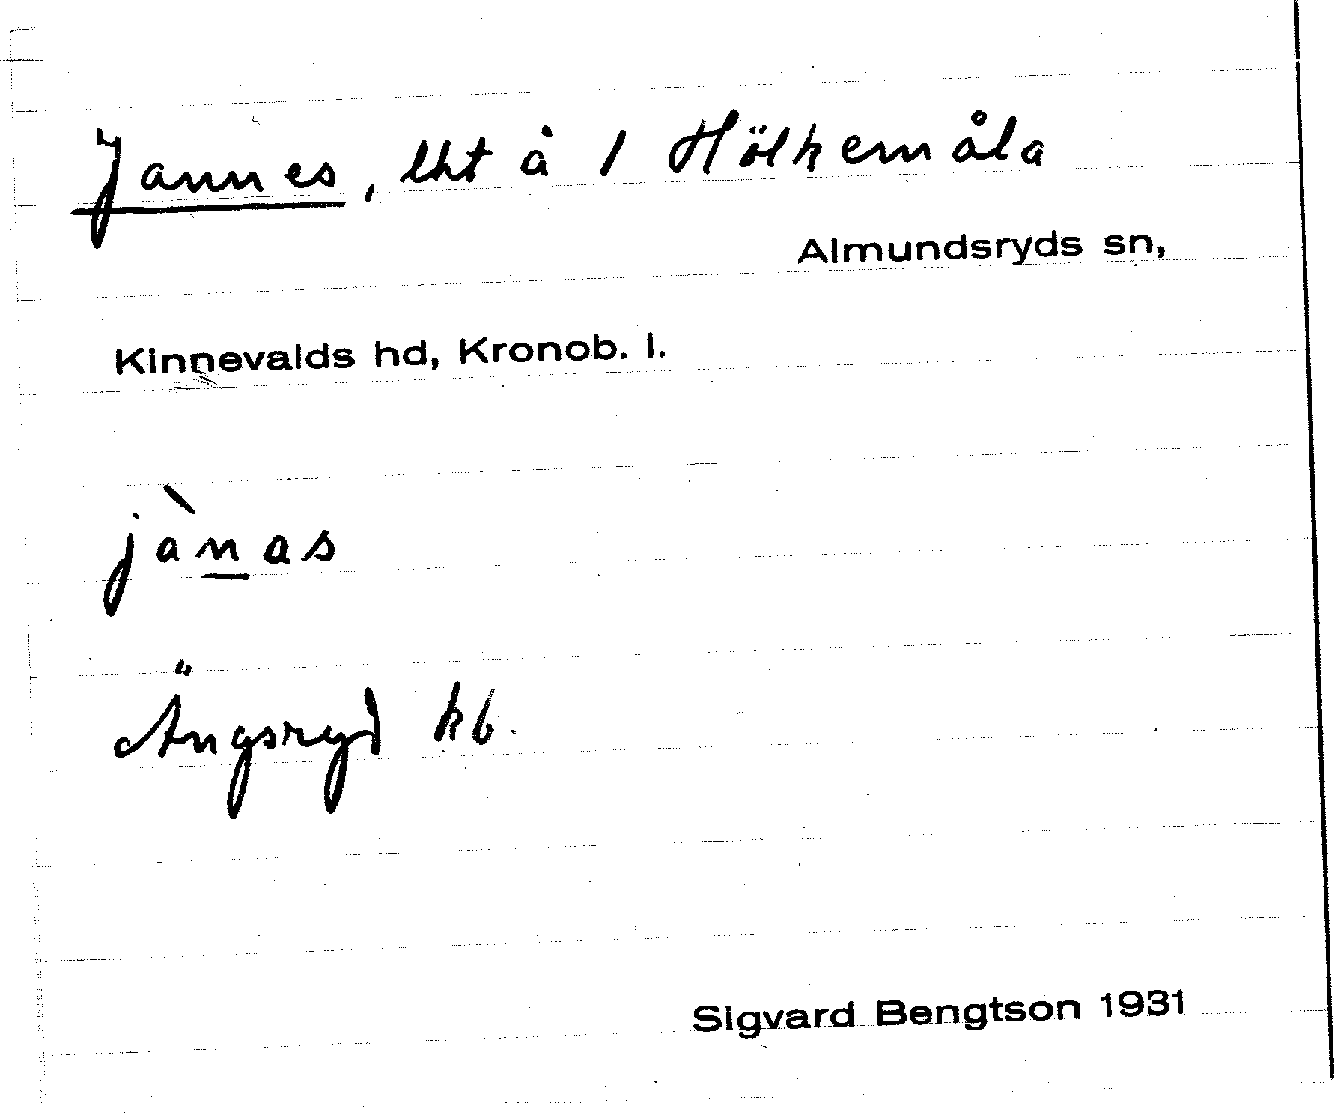 Jannes, lht å 1 Hölkemåla
Almundsryds sn,
Kinnevalds hd, Kronob. l.
jànas
Ängsryd kb.
Sigvard Bengtson 1931